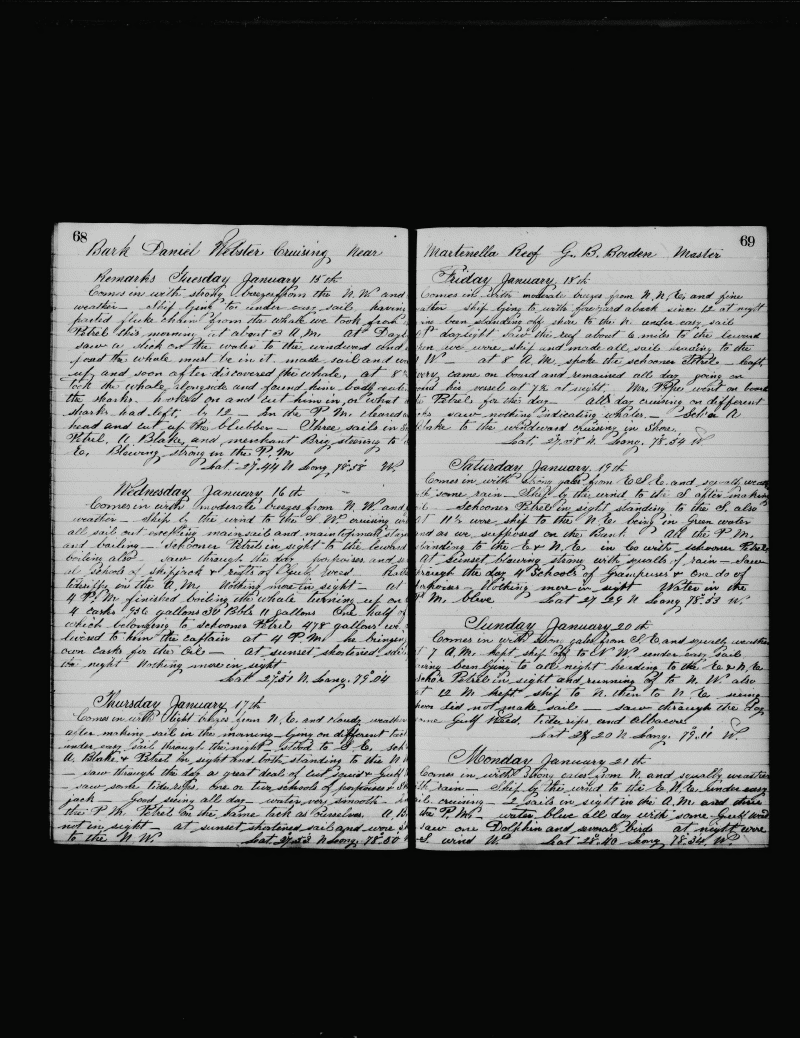 68
Bark Daniel Webster Cruising Near
Remarks Tuesday January 15th
Comes in with strong breezes from the N. W. and
weather – ship lying to under easy sail having
parted fluke chain from the whale we took from
Petrel this morning at about 3 A. M. at Dayl
saw a slick on the water to the windward and
the whale must be in it made sail and
up and soon after discovered the whale, at 8
took the whale alongside and found him badly
the sharks. hooked on and cut him in, or what
sharks had left, by 12 – In the P. M. cleared
head and cut up the blubber – Three sails in
Petrel, A. Blake, and merchant Brig steering to
E. Blowing strong in the P. M.
Lat 27.44 N Long 78.58 W.
Wednesday January 16th
Comes in with moderate breezes from N. W. and
weather – Ship by the wind to the S. W. cruising
all sail out excepting mainsail and maintopmast
and boiling – Schooner Petrel in sight to the leeward
boiling also saw through the day porpoises and
Schools of Skipjack & rafts of Gulf weed
tiderips in the A. M. Nothing more in sight – at
4 P. M. finished boiling the whale turning up on
4 casks 956 gallons 30 Bbls 11 gallons One half of
which belonging to schooner Petrel 478 gallons
livered to him the captain at 4 P. M. he bringing
own casks for the Oil – at sunset shortened
for night Nothing more in sight
Lat 27.51 N Long. 79.04
Thursday January 17th
Comes in with light airs from N. E. and cloudy weather
after making sail in the morning lying on different
under easy sail through the night stood to S. E.
A. Blake & Petrel in sight and both standing to the N
– saw through the day a great deal of cut squid & Gulf
– saw some tiderips one or two schools of porpoises &
jack – Good seeing all day – water very smooth –
the P. M. Petrel on the same tack as ourselves A. B
not in sight at sunset shortened sail and wore
to the N. W. Lat 27.53 N Long. 78.50
69
Martenella Reef G. B. Borden Master
Friday January 18th
Comes in with moderate breezes from N. N. E. and fine
weather ship lying to with foreyard aback since 12 at night
been standing off shore to the N. under easy sail
at daylight saw the reef about 6 miles to the leeward
we wore ship and made all sail heading to the
W at 8 A. M. spoke the schooner Petrel Capt.
came on board and remained all day going on
his vessel at 7½ at night. Mrs went on board
Petrel for the day – all day cruising on different
saw nothing indicating whales – Sch'r A.
Blake to the windward cruising in Shore
Lat. 27.58 N. Long. 78.54 W
Saturday January 19th
Comes in with strong gale from E S E and squally weather
with some rain – Ship by the wind to the S after making
– Schooner Petrel in sight standing to the S. also
At 11½ wore ship to the N. E being in Green water
and as we supposed on the Bank All the P. M.
standing to the E & N. E. in Co with schooner Petrel
At sunset blowing strong with squalls of rain – Saw
through the day 4 Schools of Grampuses & one do of
porpoises – Nothing more in sight Water in the
P. M. blue Lat 27.29 N Long 78.53 W
Sunday January 20th
Comes in with strong gale from S. E and squally weather
at 7 A. M. kept ship off to N W under easy sail
having been lying to all night heading to the E & N. E.
Petrel in sight and running off to N. W. also
at 12 M kept ship to N then to N E
did not make sail – saw through the day
some Gulf Weed, tiderips and Albacore
Lat 28.20 N Long. 79.11 W
Monday January 21th
Comes in with strong gales from N. and squally weather
with rain – Ship by the wind to the E N E. under easy
sail cruising – 2 sails in sight in the A. M. and three
the P. M. – water blue all day with some Gulf weed
Saw one Dolphin and several birds at night wore
S. wind W. Lat 28.40 Long 78.34 W.